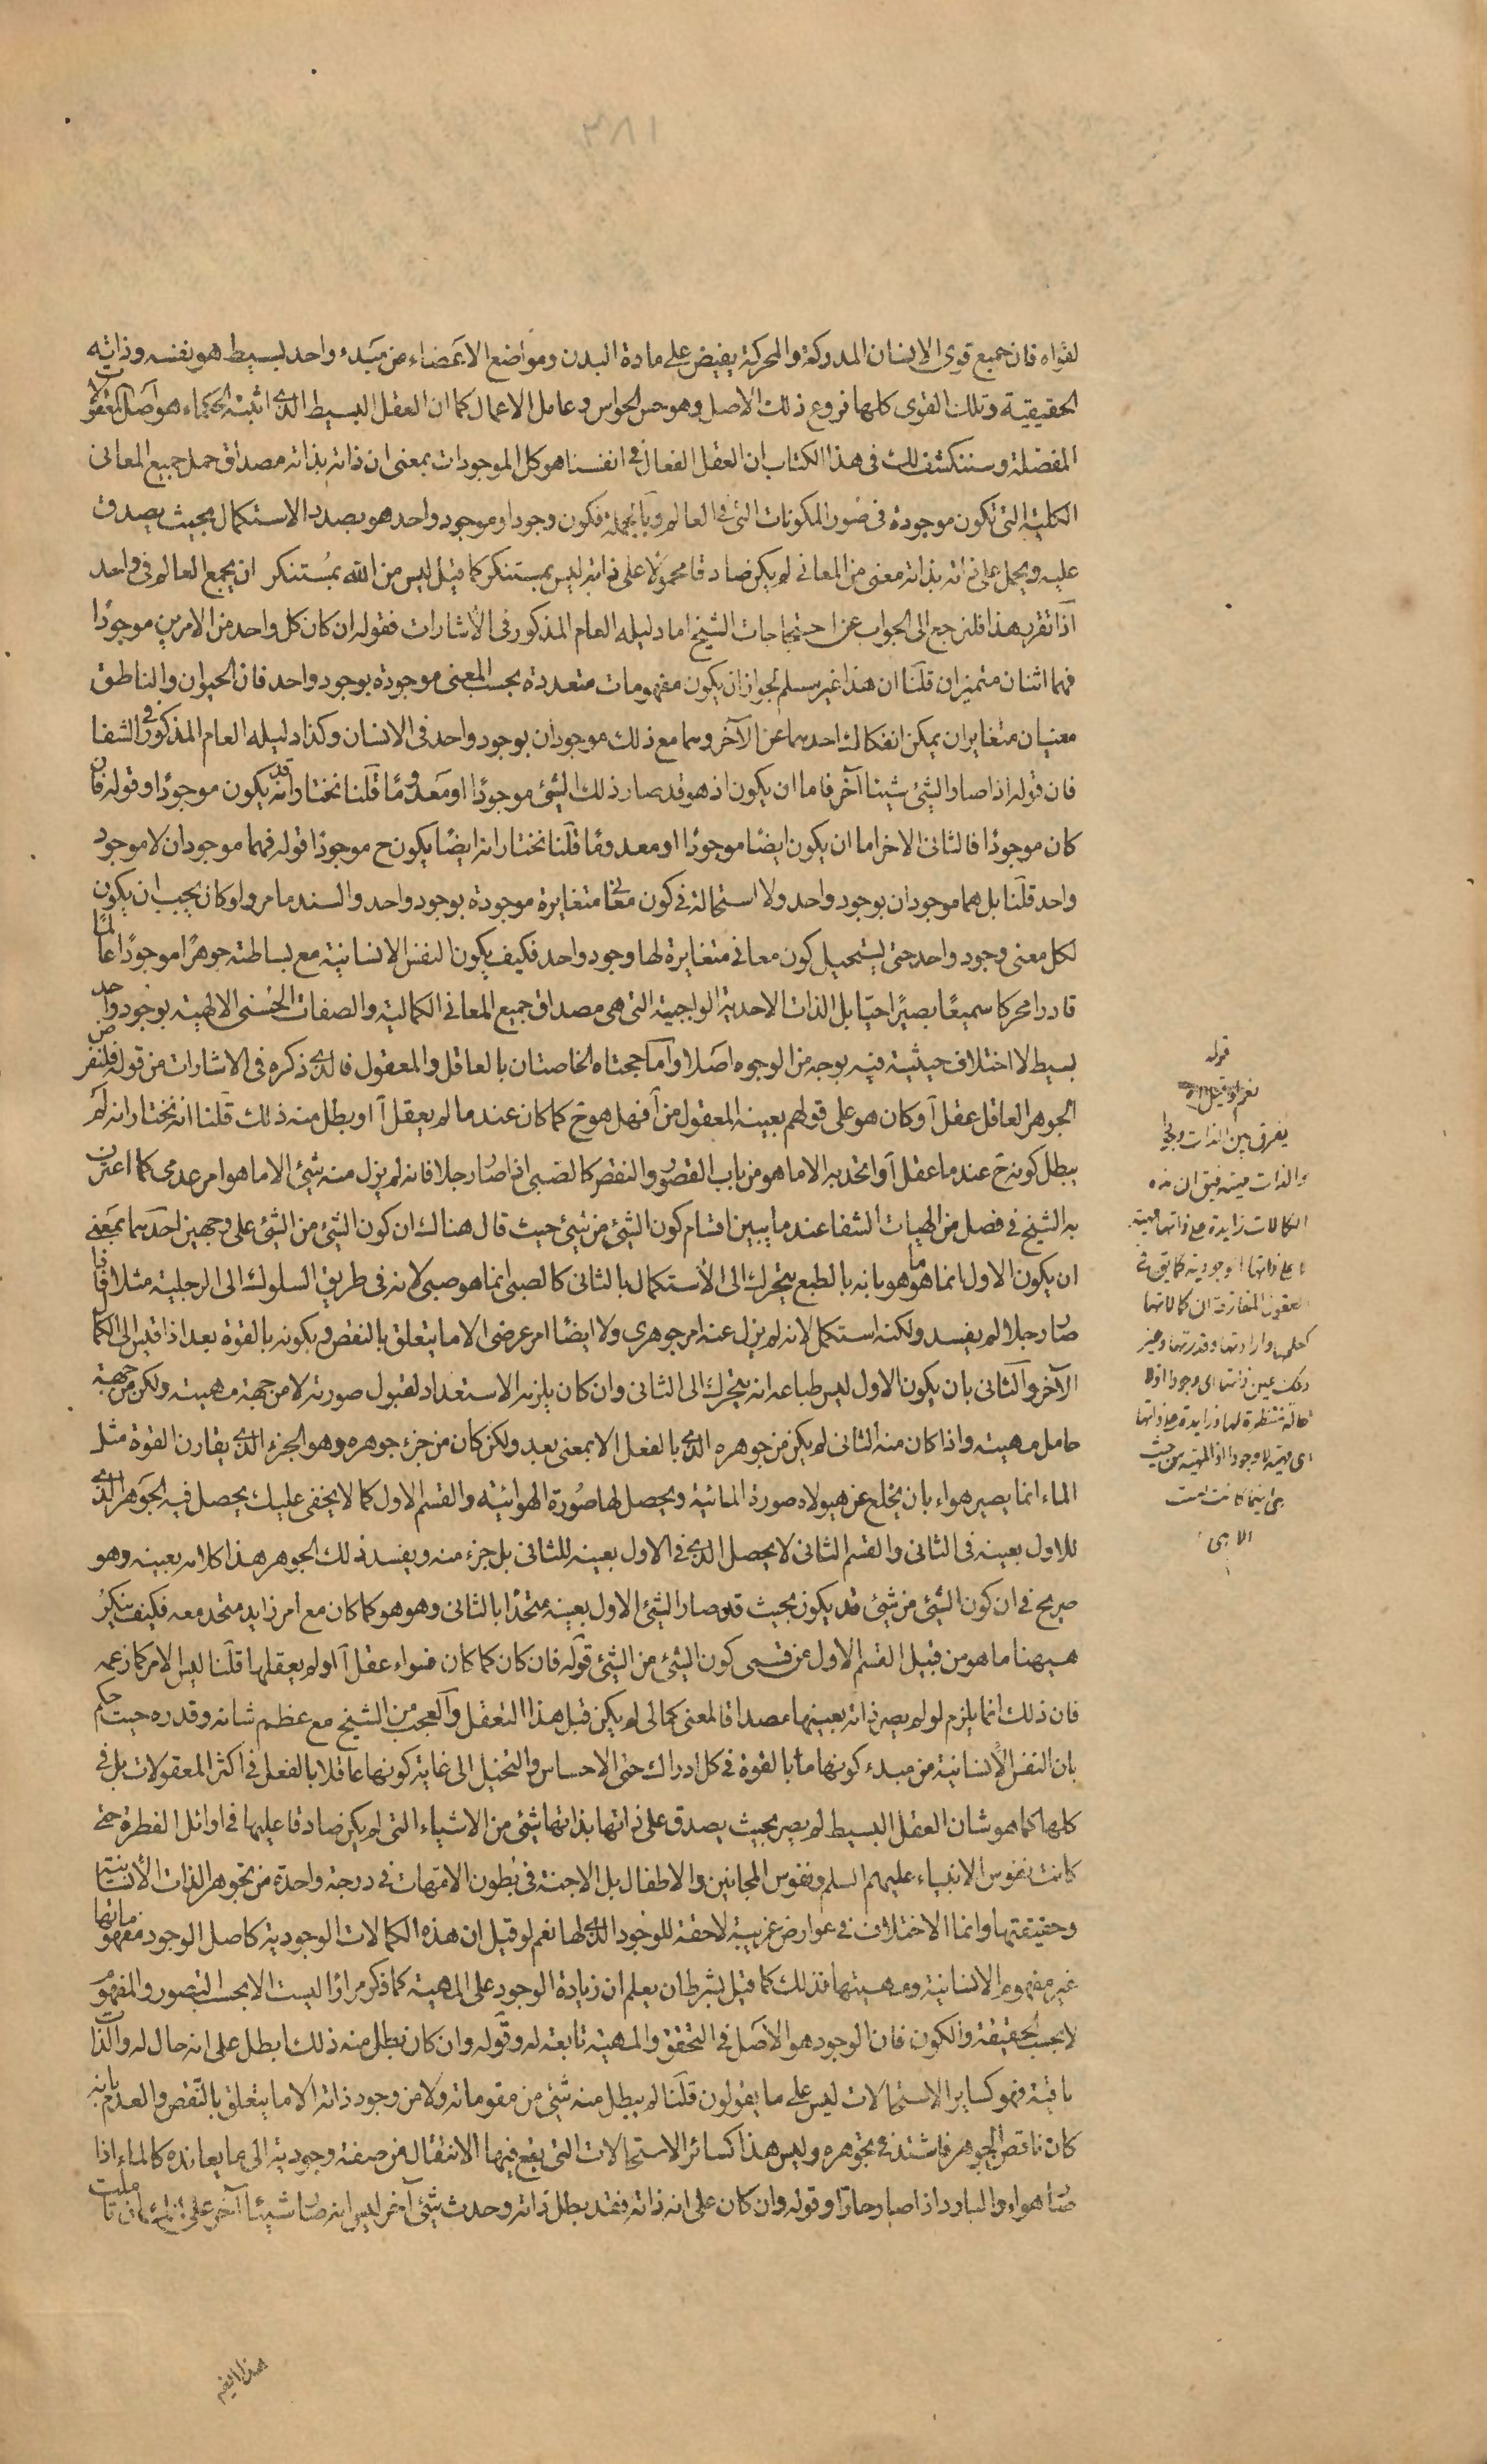 ٣٨١
لقواه فان جميع قوى الانسان المدركة والمحركة يفيض على مادة البدن ومواضع الاعضاء من مبدء واحد بسيط هو نفسه وذاته
الحقيقية وتلك القوى كلها فروع ذلك الاصل وهو حس الحواس وعامل الاعمال كما ان العقل البسيط الذى اثبته الحكماء هو اصل المعقولات
المفصلة وسننكشف لك فى هذا الكتاب ان العقل الفعال فى انفسنا هو كل الموجودات بمعنى ان ذاته بذاته مصداق حمل جميع المعانى
الكلية التى تكون موجودة فى صور المكونات التى فى العالم وبالجملة فكون وجود او موجود واحد هو بصدد الاستكمال بحيث يصدق
عليه ويحمل على ذاته بذاته معنى من المعانى لم يكن صادقا محمولا على ذاته ليس بمستنكر كما قيل ليس من الله بمستنكر ان يجمع العالم فى واحد
اذا تقرر هذا فلنرجع الى الجواب عن احتجاجات الشيخ اما دليله العام المذكور فى الاشارات فقوله ان كان كل واحد من الامرين موجودا
فهما اثنان متميزان قلنا ان هذا غير مسلم لجواز ان يكون مفهومات متعددة بحسب المعنى موجودة بوجود واحد فان الحيوان والناطق
معنيان متغايران يمكن انفكاك احدهما عن الآخر وهما مع ذلك موجودان بوجود واحد فى الانسان وكذا دليله العام المذكور فى الشفا
فان قوله اذا صار الشئ شيئا آخر فاما ان يكون اذ هو قد صار ذلك الشئ موجودا او معدوما قلنا نختار انه يكون موجودا وقوله فان
كان موجودا فالثانى الاخر اما ان يكون ايضا موجودا او معدوما قلنا نختار انه ايضا يكون ح موجودا قوله فهما موجودان لا موجود
واحد قلنا بل هما موجودان بوجود واحد ولا استحالة فى كون معانى متغايرة موجودة بوجود واحد والسند ما مر ولو كان يجب ان يكون
لكل معنى وجود واحد حتى يستحيل كون معانى متغايرة لها وجود واحد فكيف يكون النفس الانسانية مع بساطته جوهرا موجودا عالما
قادرا محركا سميعا بصيرا حيا بل الذات الاحدية الواجبية التى هى مصداق جميع المعانى الكمالية والصفات الحسنى الالهية بوجود واحد
بسيط لا اختلاف حيثية فيه بوجه من الوجوه اصلا واما حجتاه الخاصتان بالعاقل والمعقول فالذى ذكره فى الاشارات من قوله فلنفرض
الجوهر العاقل عقل آ وكان هو على قولهم بعينه المعقول من آ فهل هو ح كما كان عند ما لم يعقل آ او بطل منه ذلك قلنا انه نختار انه لم
يبطل كونه ح عند ما عقل آ واتحد به الا ما هو من باب القصور والنقص كالصبى اذا صار رجلا فانه لم يزل منه شئ الا ما هو امر عدمى كما اعترف
به الشيخ فى فصل من الهيات الشفا عند ما يبين اقسام كون الشئ من شئ حيث قال هناك ان كون الشئ من الشئ على وجهين احدهما بمعنى
ان يكون الاول انما هو ما هو بانه بالطبع يتحرك الى الاستكمال بالثانى كالصبى انما هو صبى لانه فى طريق السلوك الى الرجلية مثلا فاذا
صار رجلا لم يفسد ولكنه استكمل لانه لم يزل عنه امر جوهرى ولا ايضا امر عرضى الا ما يتعلق بالنقص وبكونه بالقوة بعد اذا قيس الى الكمال
الآخر والثانى بان يكون الاول ليس طباعه انه يتحرك الى الثانى وان كان يلزمه الاستعداد لقبول صورته لا من جهة مهيته ولكن من جهة
حامل مهيته واذا كان منه الثانى لم يكن من جوهره الذى بالفعل الا بمعنى بعد ولكن كان من جزء جوهره وهو الجزء الذى يقارن القوة مثل
الماء انما يصير هواء بان يخلع عن هيولاه صورة المائية ويحصل لها صورة الهوائية والقسم الاول كما لا يخفى عليك يحصل فيه الجوهر الذى
للاول بعينه فى الثانى والقسم الثانى لا يحصل الذى فى الاول بعينه للثانى بل جزء منه ويفسد ذلك الجوهر هذا كلامه بعينه وهو
صريح فى ان كون الشئ من شئ قد يكون بحيث قد صار الشئ الاول بعينه متحدا بالثانى وهو هو كما كان مع امر زايد متحد معه فكيف ينكر
هيهنا ما هو من قبيل القسم الاول من قسمى كون الشئ من الشئ قوله فان كان كما كان فسواء عقل آ او لم يعقلها قلنا ليس الامر كما زعمه
فان ذلك انما يلزم لو لم يصر ذاته بعينها مصداقا لمعنى كمالى لم يكن قبل هذا التعقل والعجب من الشيخ مع عظم شانه وقدره حيث حكم
بان النفس الانسانية من مبدء كونها ما بالقوة فى كل ادراك حتى الاحساس والتخيل الى غاية كونها عاقلا بالفعل فى اكثر المعقولات بل فى
كلها كما هو شان العقل البسيط لم يصر بحيث يصدق على ذاتها بذاتها شئ من الاشياء التى لم يكن صادقا عليها فى اوائل الفطرة حتى
كانت نفوس الانبياء عليهم السلم ونفوس المجانين والاطفال بل الاجنة فى بطون الامهات فى درجة واحدة من تجوهر الذات الانسانية
وحقيقتها وانما الاختلاف فى عوارض غريبة لاحقة للوجود الذى لها نعم لو قيل ان هذه الكمالات الوجودية كاصل الوجود مفهوماتها
غير مفهوم الانسانية ومهيتها فذلك كما قيل بشرط ان يعلم ان زيادة الوجود على المهية كما ذكر مرارا ليست الا بحسب التصور والمفهوم
لا بحسب الحقيقة والكون فان الوجود هو الاصل فى التحقق والمهية تابعة له وقوله وان كان بطل منه ذلك ابطل على انه حال له والذات
باقية فهو كساير الاستحالات ليس على ما يقولون قلنا لم يبطل منه شئ من مقوماته ولا من وجود ذاته الا ما يتعلق بالنقص والعدم بانه
كان ناقص الجوهر فاشتد فى تجوهره وليس هذا كسائر الاستحالات التى يقع فيها الانتقال من صفة وجودية الى ما يعانده كالماء اذا
صار هواء والبارد اذا صار حارا وقوله وان كان على انه ذاته فقد بطل ذاته وحدث شئ آخر ليس انه صار شيئا آخر على انك ان تاملت
قوله
نعم لو قيل اه
يفرق بين الذات
والذات مهية فيق ان هذه
الكمالات زايدة على ذاتها مهية
لا على ذاتها الوجودية كما يق فى
العقول المفارقة ان كمالاتها
كعلمها وارادتها وقدرتها وغير
ذلك عين ذاتها اى وجودا اذ لا
حالة منتظرة لها وزايدة على ذاتها
اى مهية لا وجودا اذ المهية من حيث
هى اينما كانت ليست
الا هى
هذا ايضا